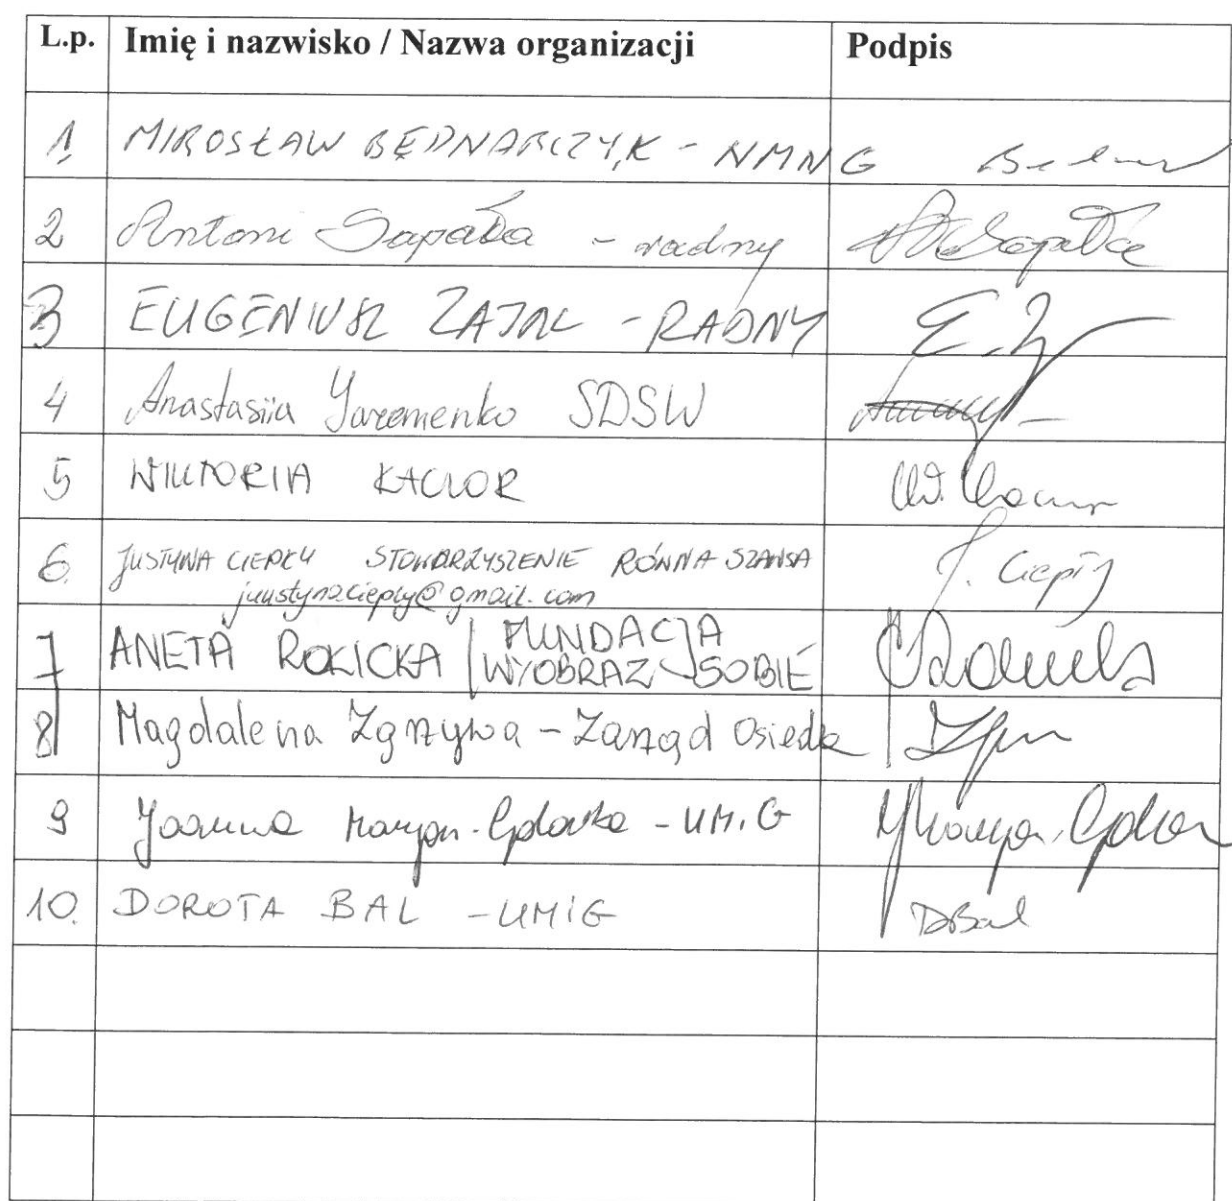 L.p. Imię i nazwisko / Nazwa organizacji Podpis
1. MIROSŁAW BEDNARCZYK - NMNG
2 Antoni Sapała - radny Sapała
3 EUGENIUSZ ZAJĄC - RADNY E. Z
4 Anastasiia Yaremenko SDSW
5 WIKTORIA KACZOR W.
6. JUSTYNA CIEPŁY STOWARZYSZENIE RÓWNA SZANSA J. Ciepły
juustynacieply@gmail.com
7 ANETA ROKICKA | FUNDACJA
WYOBRAZ SOBIE
8 Magdalena Zgrzywa - Zarząd Osiedla
9 Joanna - UMiG
10. DOROTA BAL - UMiG DBal